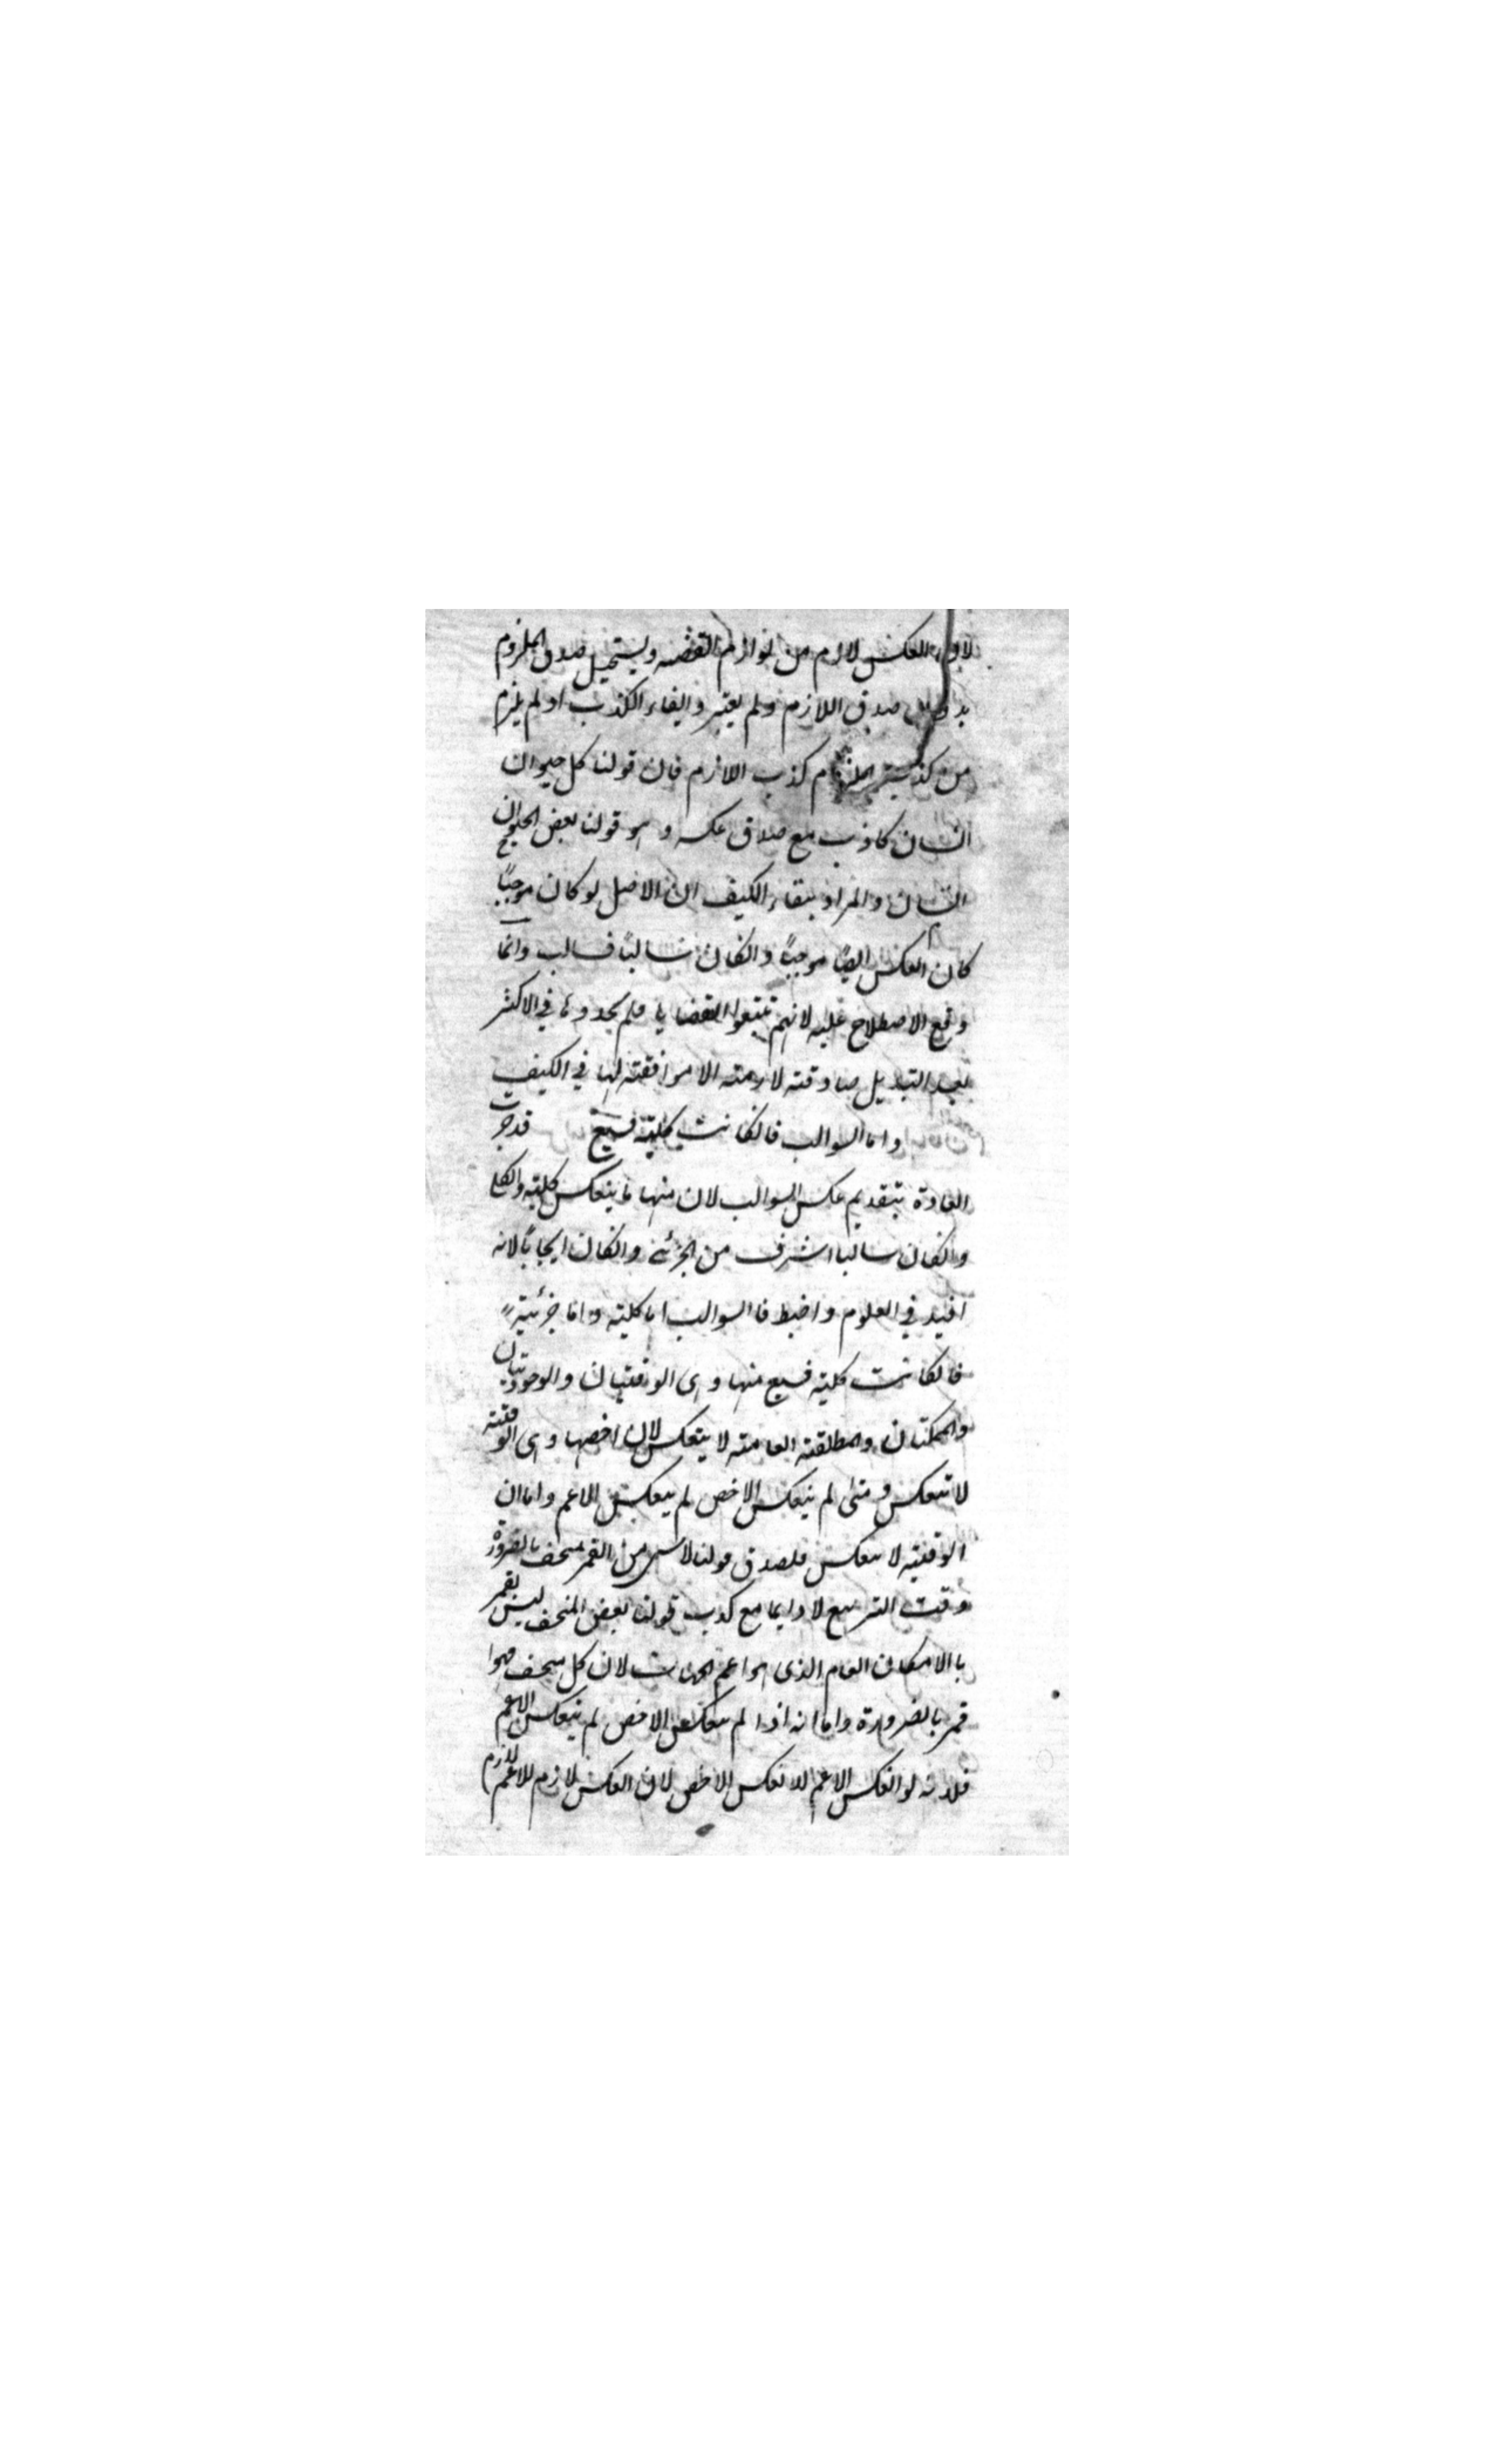 لان العكس لازم من لوازم القضيه ويستحيل صدق الملزوم
بدون صدق اللازم ولم يعتبروا بقاء الكذب اذ لم يلزم
من كذب الملزوم كذب اللازم فان قولنا كل حيوان
انسان كاذب مع صدق عكسه وهو قولنا بعض الحيوان
انسان والمراد ببقاء الكيف ان الاصل لو كان موجبًا
كان العكس ايضًا موجبًا وانكان سالبًا فسالب وانما
وقع الاصطلاح عليه لانهم تتبعوا القضايا فلم يجدوها في الاكثر
بعد التبديل صادقة لازمة الا موافقة لها في الكيف
واما السوالب فانكانت كلية فسبع قد جرت
العادة بتقديم عكس السوالب لان منها ما ينعكس كلية والكلي
وانكان سالبا اشرف من الجزئي وانكان ايجابًا لانه
افيد في العلوم واضبط فالسوالب اما كلية واما جزئية
فانكانت كلية فسبع منها وهي الوقتيتان والوجوديتان
والممكنتان والمطلقة العامة لا ينعكس لان اخصها وهي الوقتية
لا تنعكس ومتى لم ينعكس الاخص لم ينعكس الاعم واما ان
الوقتية لا تنعكس فلصدق قولنا لا شي من القمر بمنخسف بالضرورة
وقت التربيع لا دايما مع كذب قولنا بعض المنخسف ليس بقمر
بالامكان العام الذي هو اعم الجهات لان كل منخسف فهوا
قمر بالضرورة واما انه اذا لم ينعكس الاخص لم ينعكس الاعم
فلانه لو انعكس الاعم لانعكس الاخص لان العكس لازم للاعم لازم